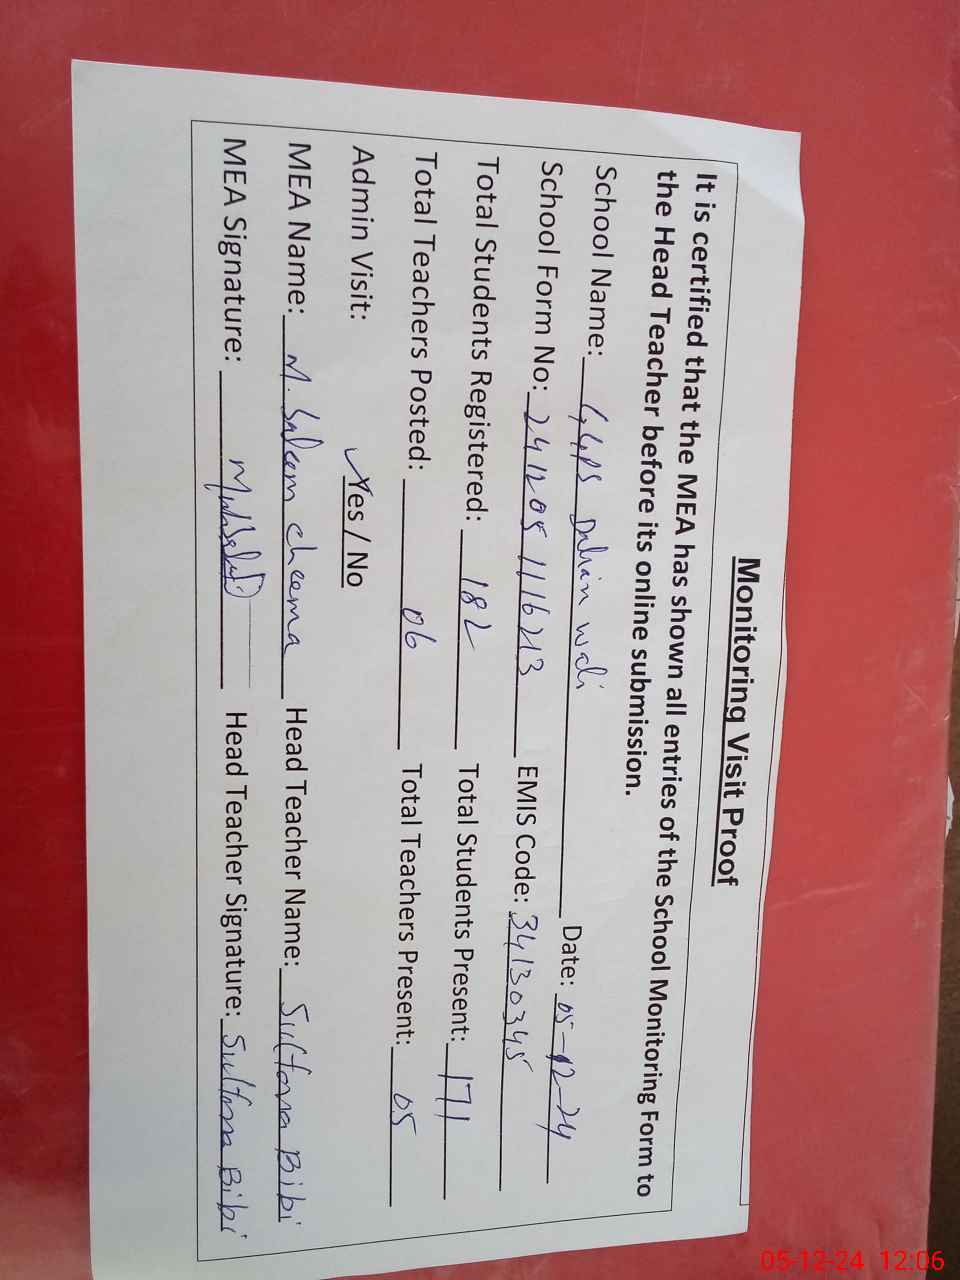 Monitoring Visit Proof
It is certified that the MEA has shown all entries of the School Monitoring Form to
the Head Teacher before its online submission.
School Name: GGPS Wali Date: 05-12-24
School Form No: 241205 1116213 EMIS Code: 34130345
Total Students Registered: 182 Total Students Present: 171
Total Teachers Posted: 06 Total Teachers Present: 05
Admin Visit: ✓Yes / No
MEA Name: M. Saleem Cheema Head Teacher Name: Sultana Bibi
MEA Signature: Head Teacher Signature: Sultana Bibi
05-12-24 12:06